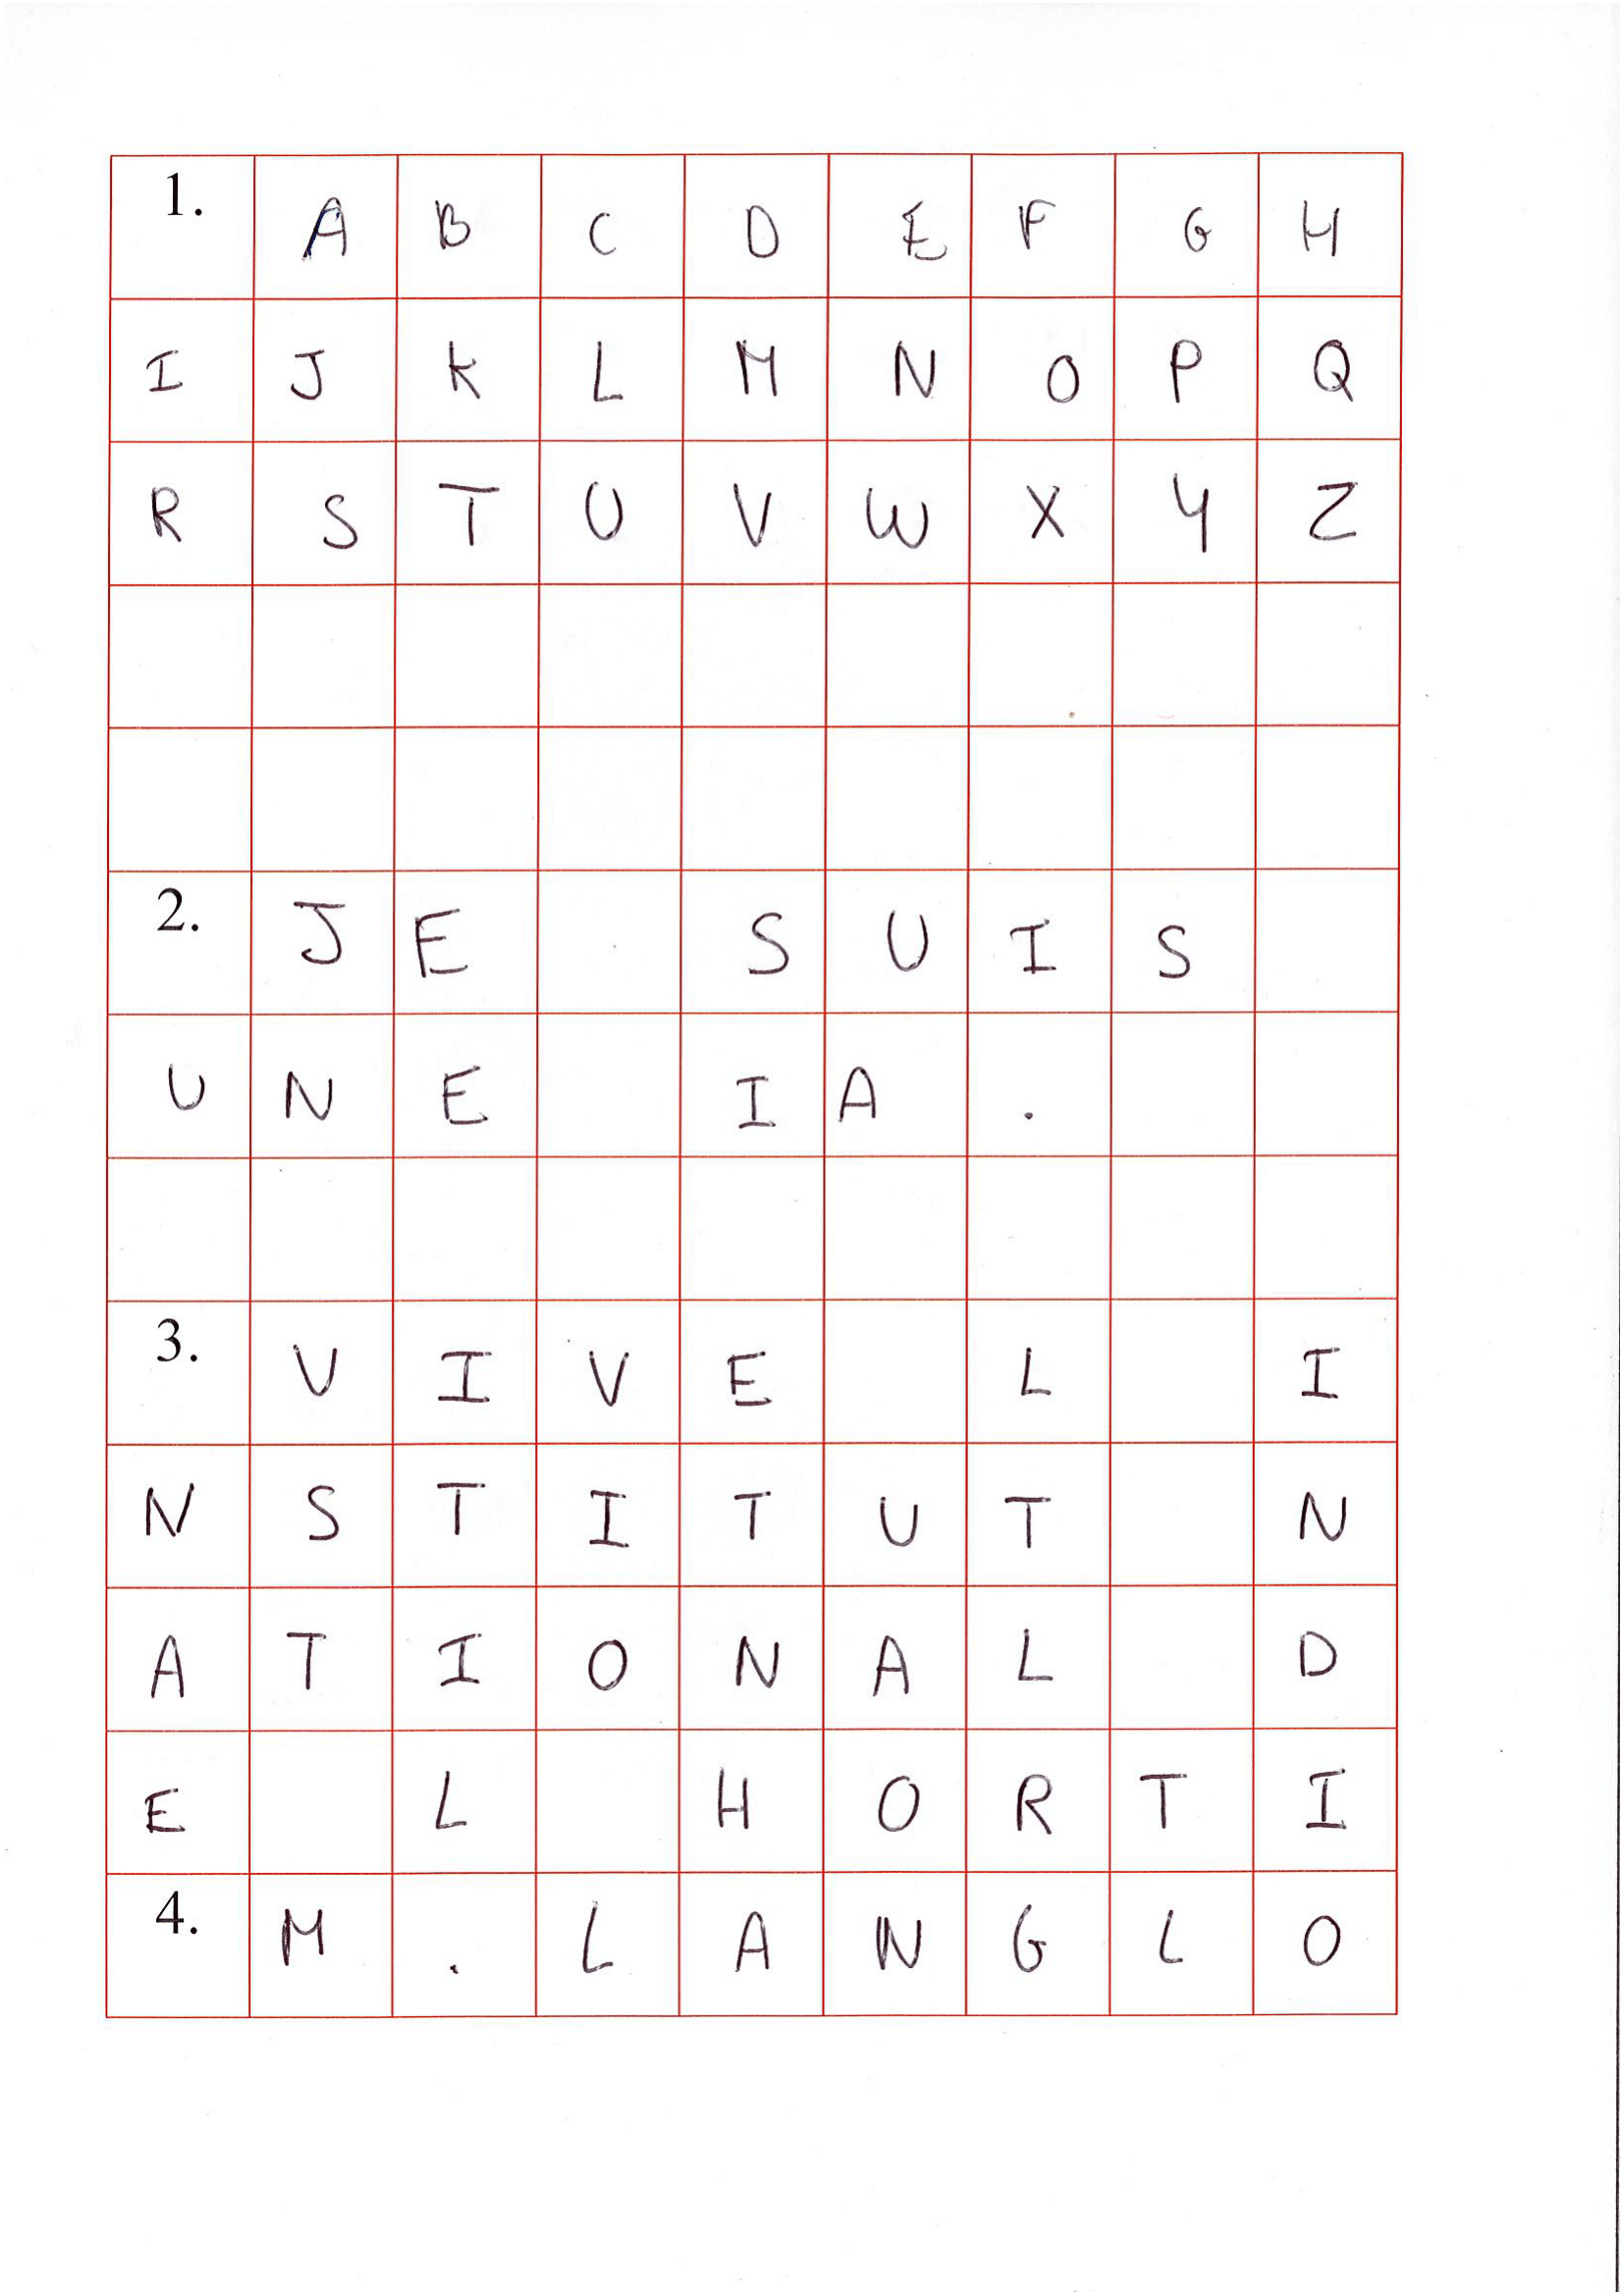 1. A B C D E F G H
I J K L M N O P Q
R S T U V W X Y Z
2. J E S U I S
U N E I A .
3. V I V E L I
N S T I T U T N
A T I O N A L D
E L H O R T I
4. M . L A N G L O